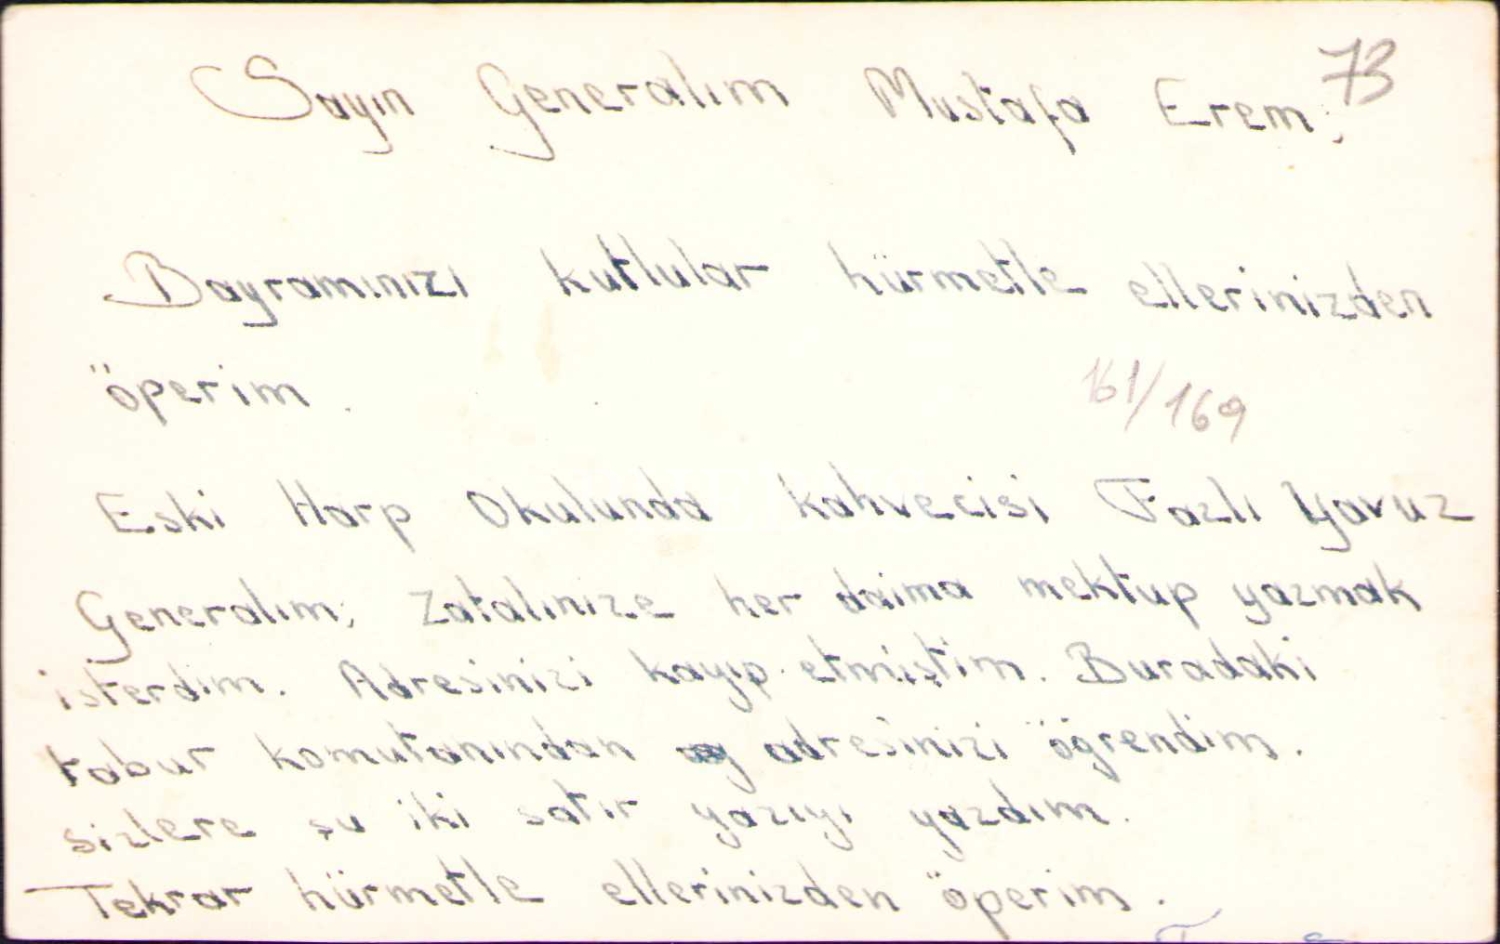 73
Sayın Generalım Mustafa Erem;
Bayramınızı kutlular hürmetle ellerinizden
öperim.
161/169
Eski Harp Okulunda kahvecisi Fazlı Yavuz
Generalım; Zatalınize her daima mektup yazmak
isterdim. Adresinizi kayıp etmiştim. Buradaki
tabur komutanından adresinizi öğrendim.
sizlere şu iki satır yazıyı yazdım.
Tekrar hürmetle ellerinizden öperim.